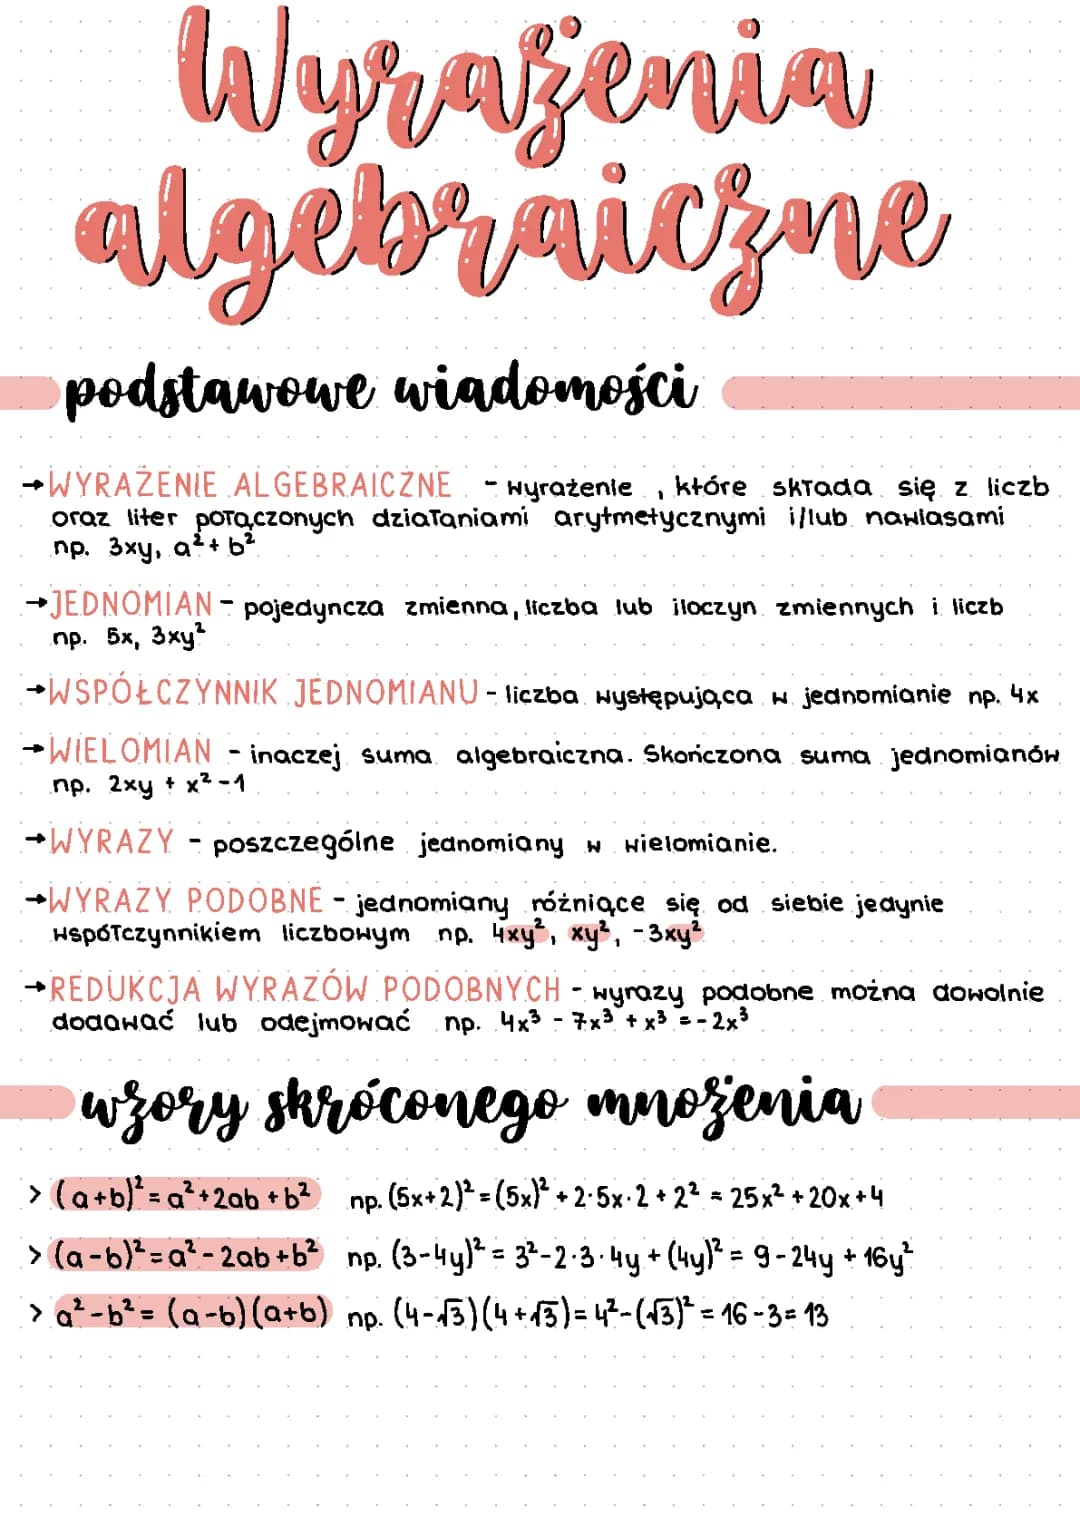 Wyrażenia
algebraiczne
podstawowe wiadomości
→WYRAŻENIE ALGEBRAICZNE - wyrażenie , które składa się z liczb
oraz liter połączonych działaniami arytmetycznymi i/lub nawiasami
np. 3xy, a² + b²
→JEDNOMIAN - pojedyncza zmienna, liczba lub iloczyn zmiennych i liczb
np. 5x, 3xy²
→WSPÓŁCZYNNIK JEDNOMIANU - liczba występująca w jednomianie np. 4x
→WIELOMIAN - inaczej suma algebraiczna. Skończona suma jednomianów
np. 2xy + x² -1
→WYRAZY - poszczególne jednomiany w wielomianie.
→WYRAZY PODOBNE - jednomiany różniące się od siebie jedynie
współczynnikiem liczbowym np. 4xy², xy², -3xy²
→REDUKCJA WYRAZÓW PODOBNYCH - wyrazy podobne można dowolnie
dodawać lub odejmować np. 4x³ - 7x³ + x³ = -2x³
wzory skróconego mnożenia
> (a+b)² = a² + 2ab + b² np. (5x+2)² = (5x)² + 2·5x·2 + 2² = 25x² + 20x + 4
> (a-b)² = a² - 2ab + b² np. (3-4y)² = 3² - 2·3·4y + (4y)² = 9 - 24y + 16y²
> a² - b² = (a-b)(a+b) np. (4-√3)(4+√3) = 4² - (√3)² = 16 - 3 = 13